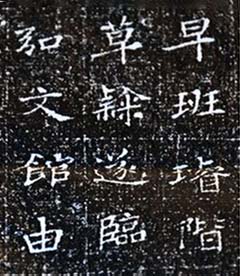 早班璿階
草隸遂臨
弘文館由